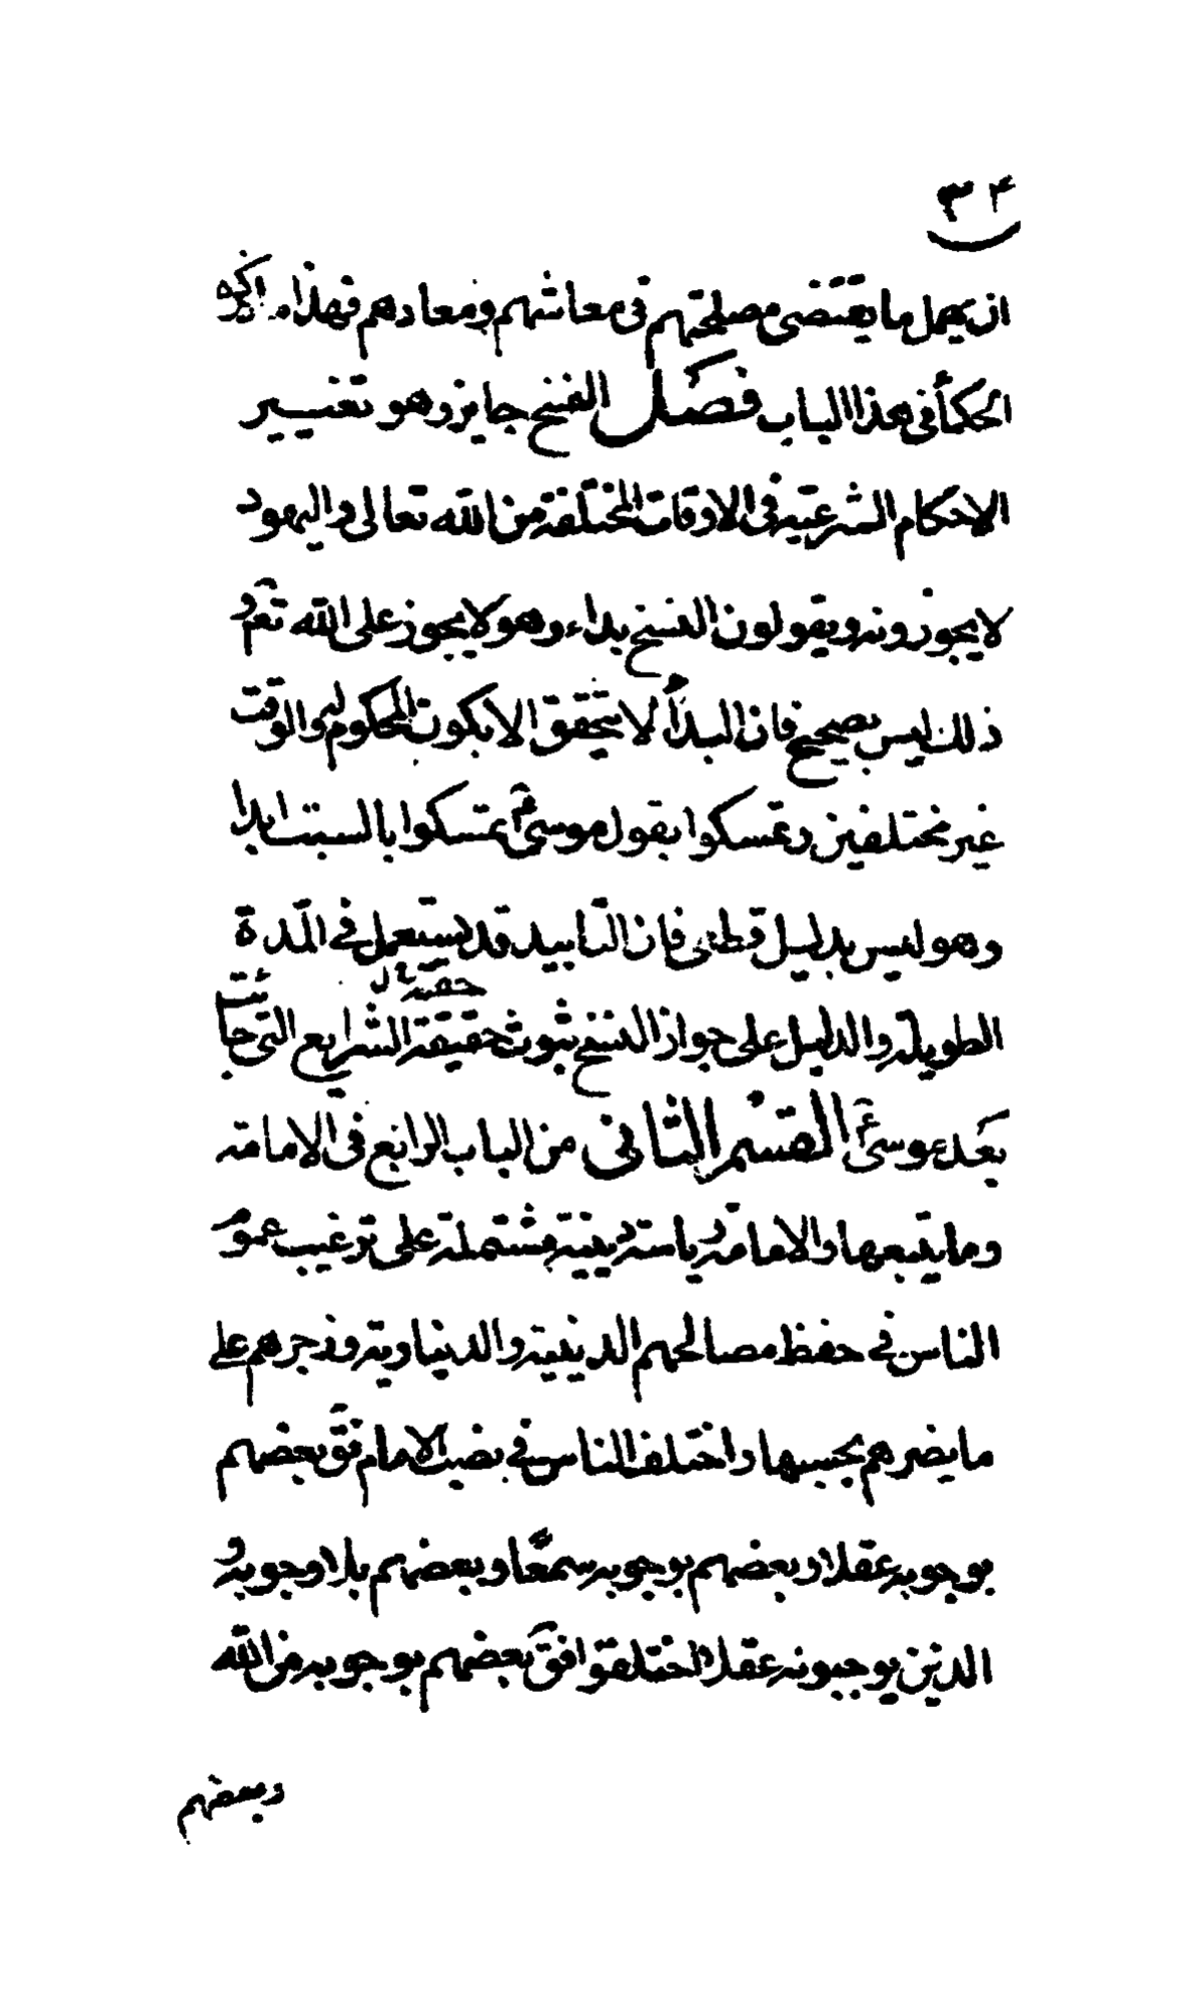 ٣٤
ان يهمل ما يقتضى مصلحتهم فى معاشهم ومعادهم فهذا ما ذكره
الحكمآ فى هذا الباب فصل النسخ جايز وهو تغيير
الاحكام الشرعيّة فى الاوقات المختلفة من الله تعالى واليهود
لا يجوزونه ويقولون النسخ بداء وهو لا يجوز على الله تعم و
ذلك ليس بصحيح فان البدأ لا يتحقق الا بكون المحكوم به والوقت
غير مختلفين وتمسكوا بقول موسىٓ تمسكوا بالسبت ابدا
وهو ليس بدليل قطعى فان التابيد قد يستعمل فى المدة
حقيّه ل
الطويلة والدليل على جواز النسخ ثبوت حقيقة الشرايع التى جائت
بعد موسىٓ القسم الثانى من الباب الرابع فى الامامة
وما يتبعها والامامة رياسة دينية مشتملة على ترغيب عموم
الناس فى حفظ مصالحهم الدينية والدنياوية وزجرهم على
ما يضرهم بحسبها واختلف الناس فى نصب الامام فقٓ بعضهم
بوجوبه عقلا وبعضهم بوجوبه سمعًا وبعضهم بلا وجوبه و
الذين يوجبونه عقلا اختلفوا فقٓ بعضهم بوجوبه من الله
وبعضهم